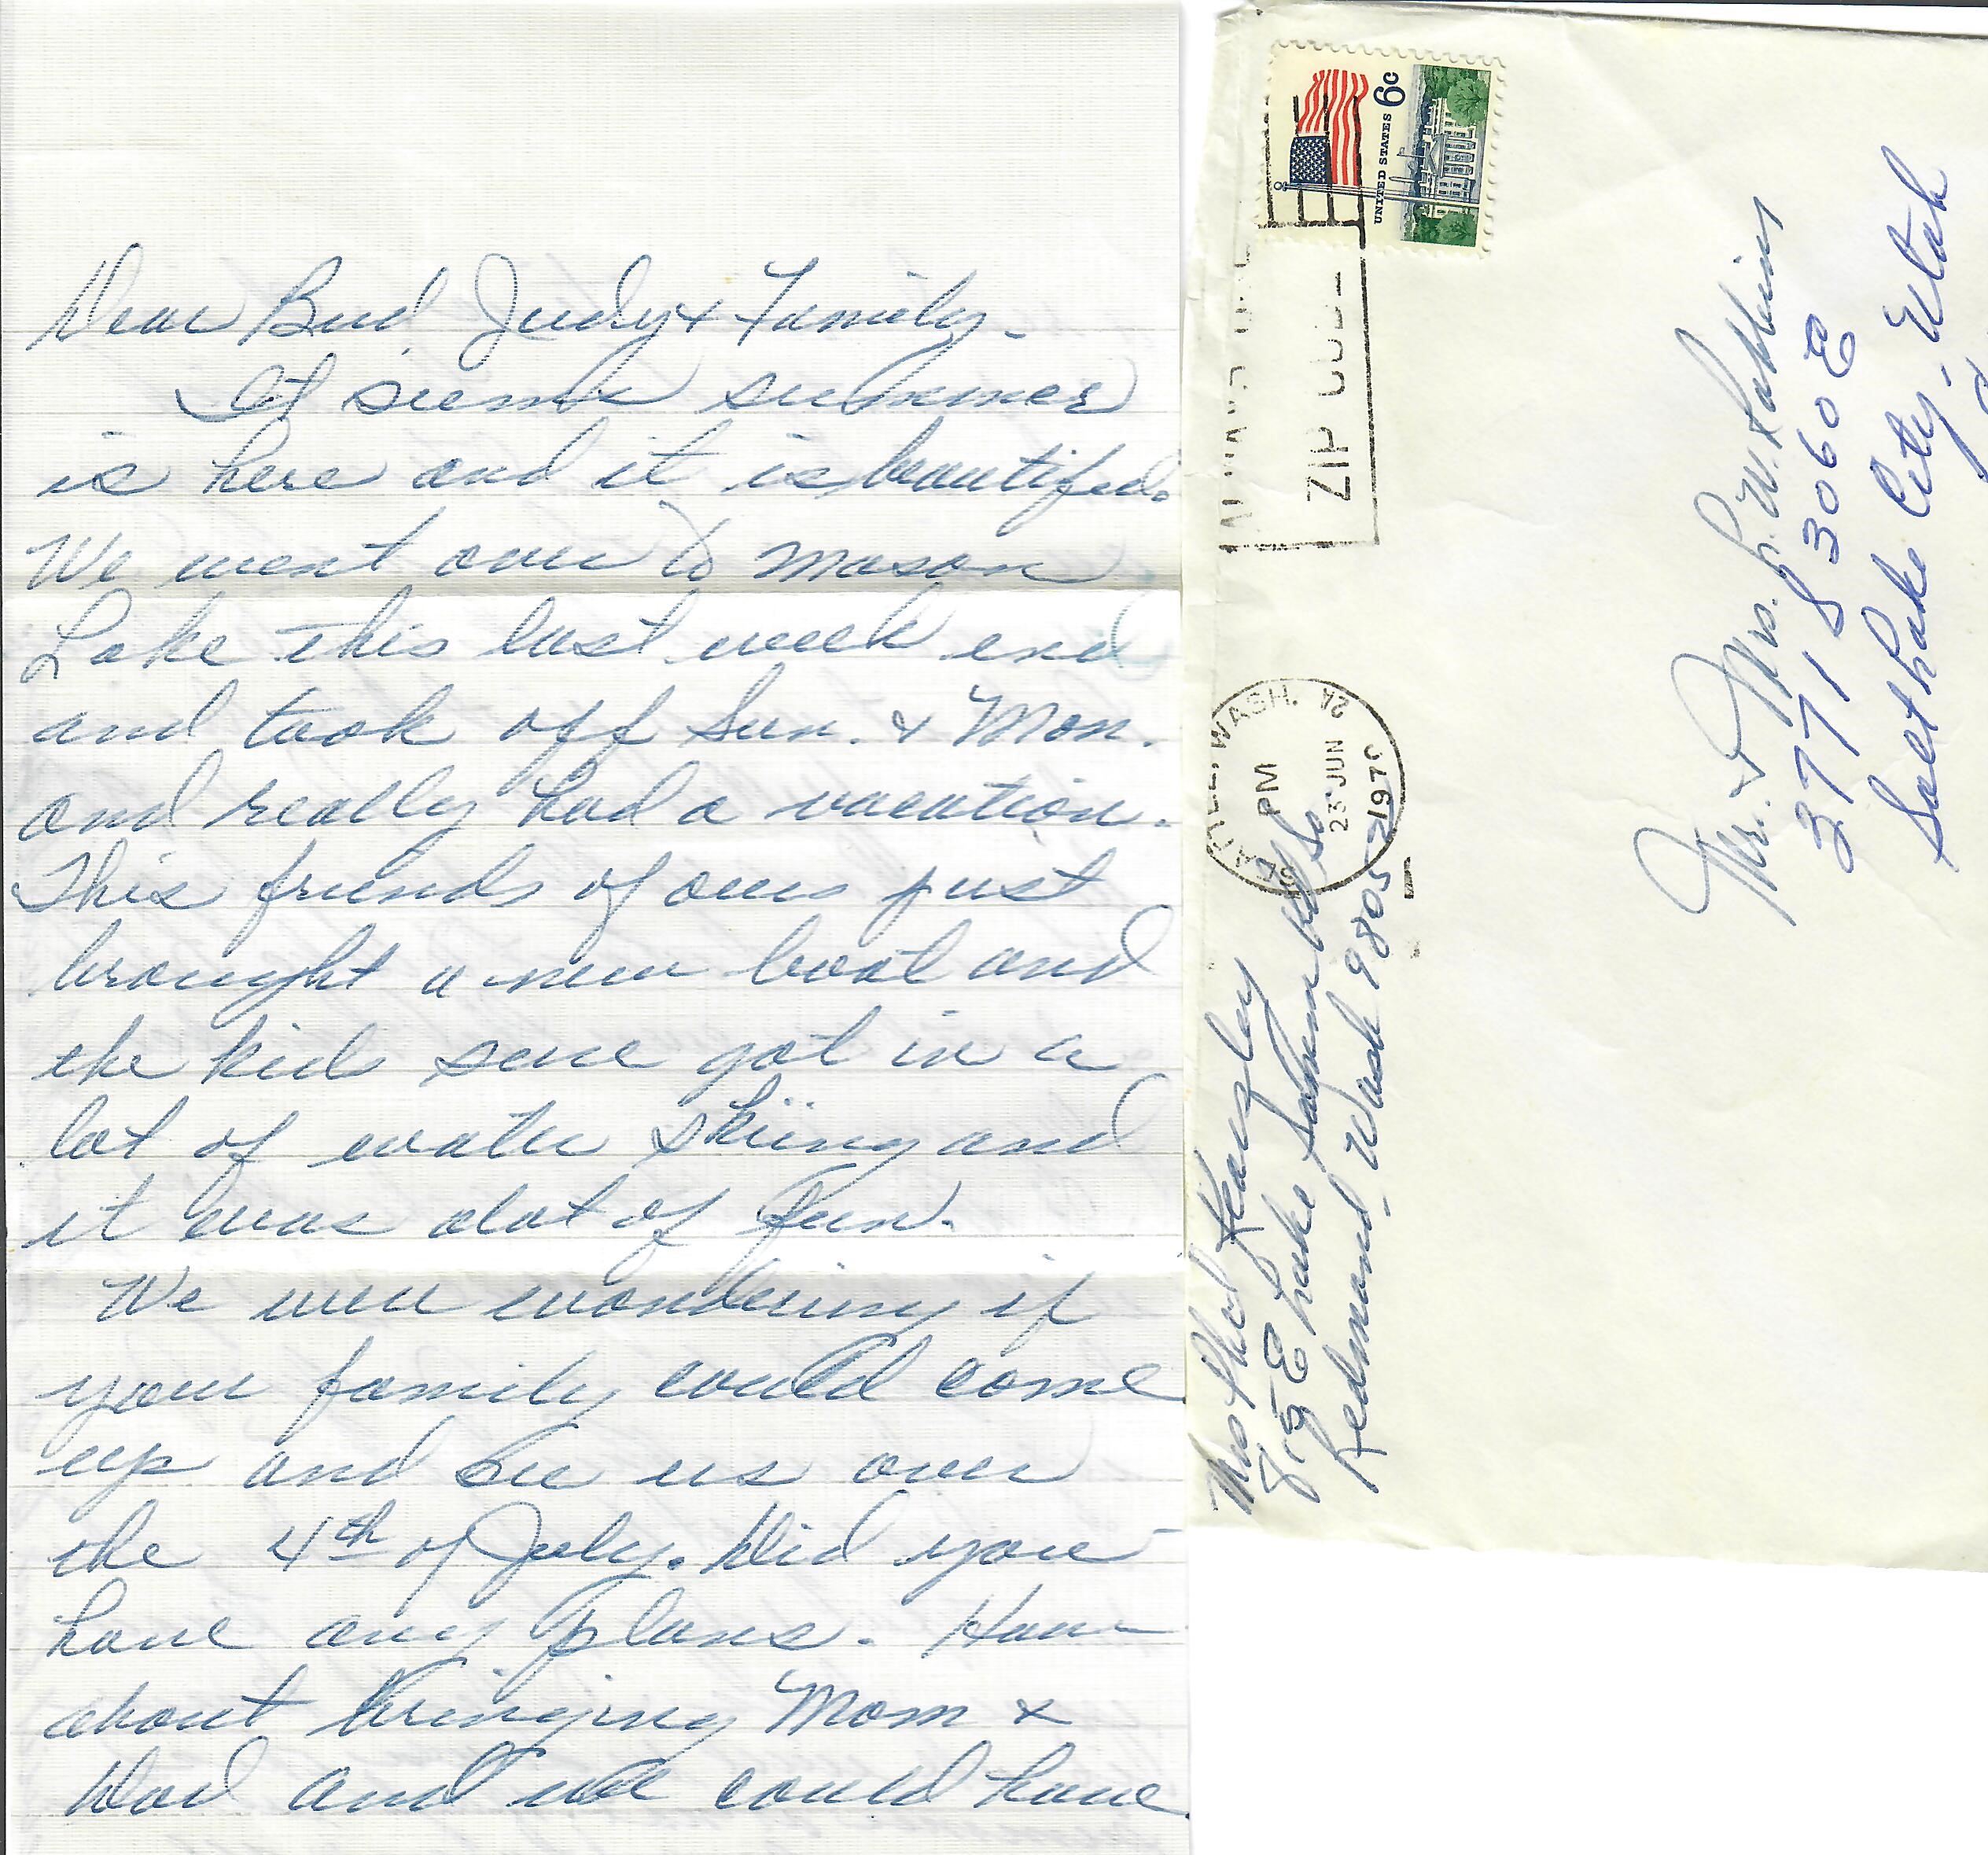 Dear Bud, Judy & Family.
It seems summer
is here and it is beautiful.
We went over to Mason
Lake this last week end
and took off Sun. & Mon.
and really had a vacation.
This friends of ours just
brought a new boat and
the kids sure got in a
lot of water skiing and
it was alot of fun.
We were wondering if
your family could come
up and see us over
the 4th of July. Did you
have any plans. How
about bringing Mom &
Dad and we could have
UNITED STATES 6c
ZIP CODE
WASH.
PM
23 JUN
1970
Mrs
815 E Lake Samm Bld So
Redmond - Wash 98052
Mr. & Mrs. L. W. Robbins
3771 S 3060 E
Salt Lake City, Utah